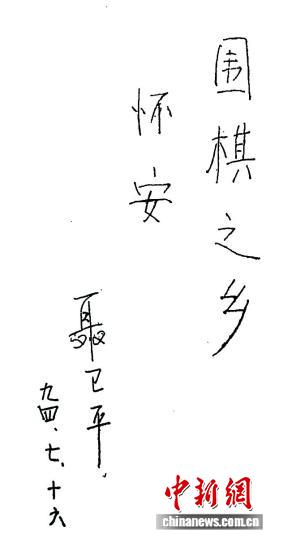 围棋之乡
怀安
聂卫平
九四、七、十六
中新網
chinanews.com.cn